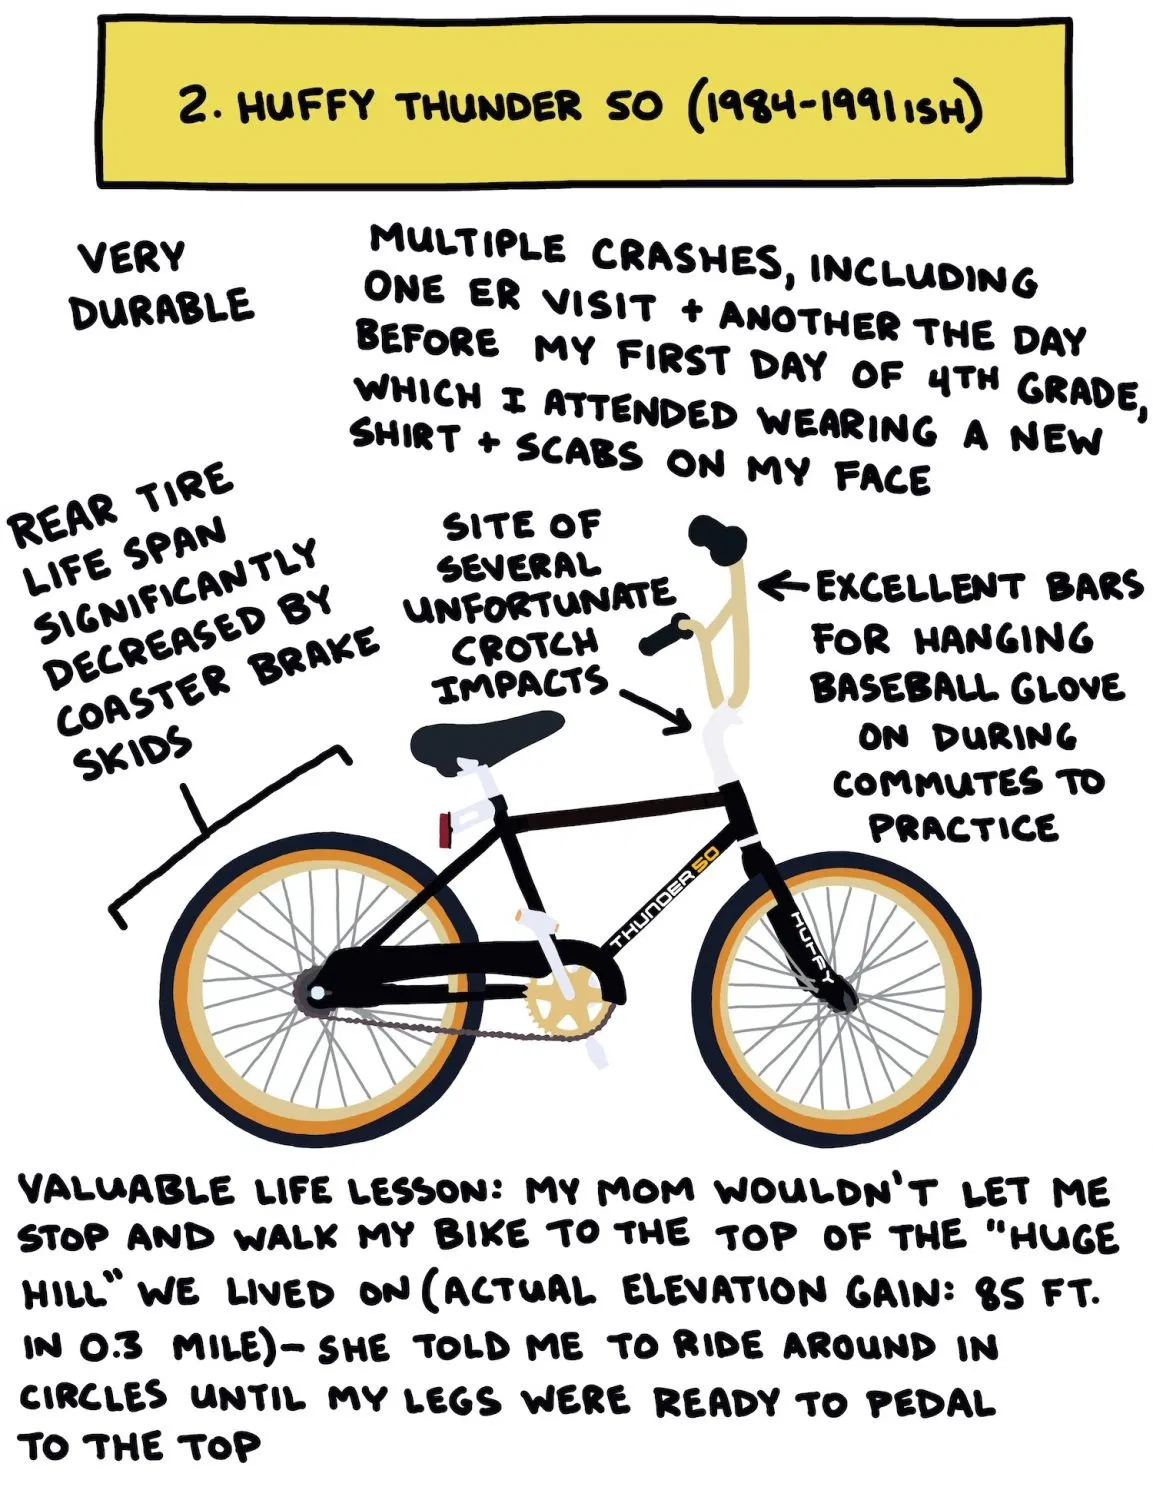 2. HUFFY THUNDER 50 (1984-1991ISH)
VERY
DURABLE
MULTIPLE CRASHES, INCLUDING
ONE ER VISIT + ANOTHER THE DAY
BEFORE MY FIRST DAY OF 4TH GRADE,
WHICH I ATTENDED WEARING A NEW
SHIRT + SCABS ON MY FACE
REAR TIRE
LIFE SPAN
SIGNIFICANTLY
DECREASED BY
COASTER BRAKE
SKIDS
SITE OF
SEVERAL
UNFORTUNATE
CROTCH
IMPACTS
EXCELLENT BARS
FOR HANGING
BASEBALL GLOVE
ON DURING
COMMUTES TO
PRACTICE
THUNDER 50
HUFFY
VALUABLE LIFE LESSON: MY MOM WOULDN'T LET ME
STOP AND WALK MY BIKE TO THE TOP OF THE "HUGE
HILL" WE LIVED ON (ACTUAL ELEVATION GAIN: 85 FT.
IN 0.3 MILE)- SHE TOLD ME TO RIDE AROUND IN
CIRCLES UNTIL MY LEGS WERE READY TO PEDAL
TO THE TOP